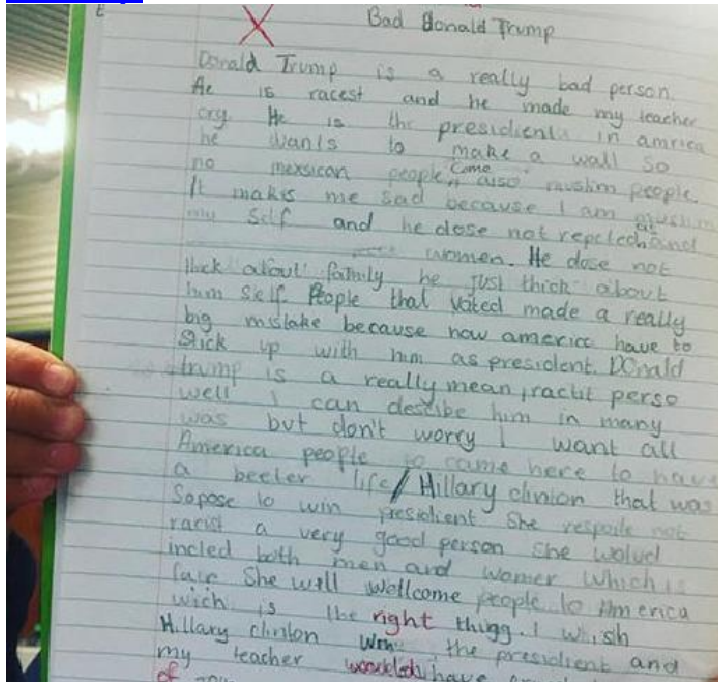 Bad Donald Trump
Donald Trump is a really bad person.
He is racest and he made my teacher
cry. He is the presidient in amrica
he wants to make a wall so
no mexsican people come also muslim people.
It makes me sad because I am muslim
my self and he dose not
women. He dose not
thick about family he just thick about
him self. People that voted made a really
big mistake because now americ have to
stick up with him as president. DOnald
trump is a really mean, ractit perso
well I can describe him in many
was but don't worry I want all
America people to came here to have
a beeter life/Hillary clinton that was
Sopose to win presidient She respoite not
racist a very good person she wolud
incled both men and women which is
fair She will wellcome people to America
wich is the right thigg. I whish
Hillary clinton the presidient and
my teacher have
of